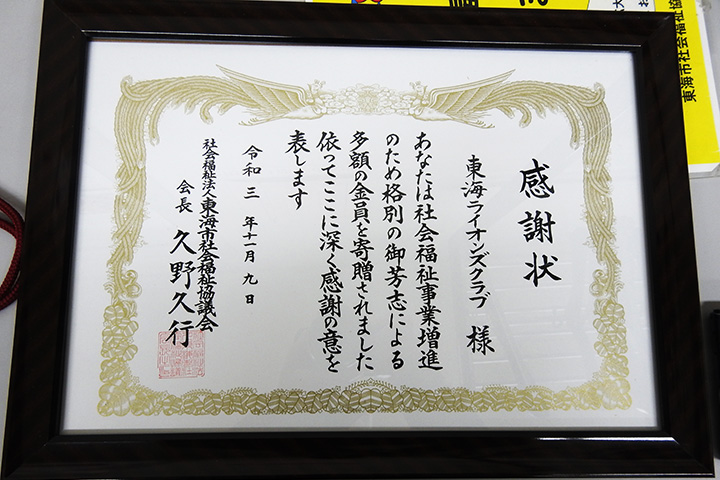 感謝状
東海ライオンズクラブ 様
あなたは社会福祉事業増進
のため格別の御芳志による
多額の金員を寄贈されました
依ってここに深く感謝の意を
表します
令和三年十一月九日
社会福祉法人東海市社会福祉協議会
会長 久野久行
東海市社会福祉協